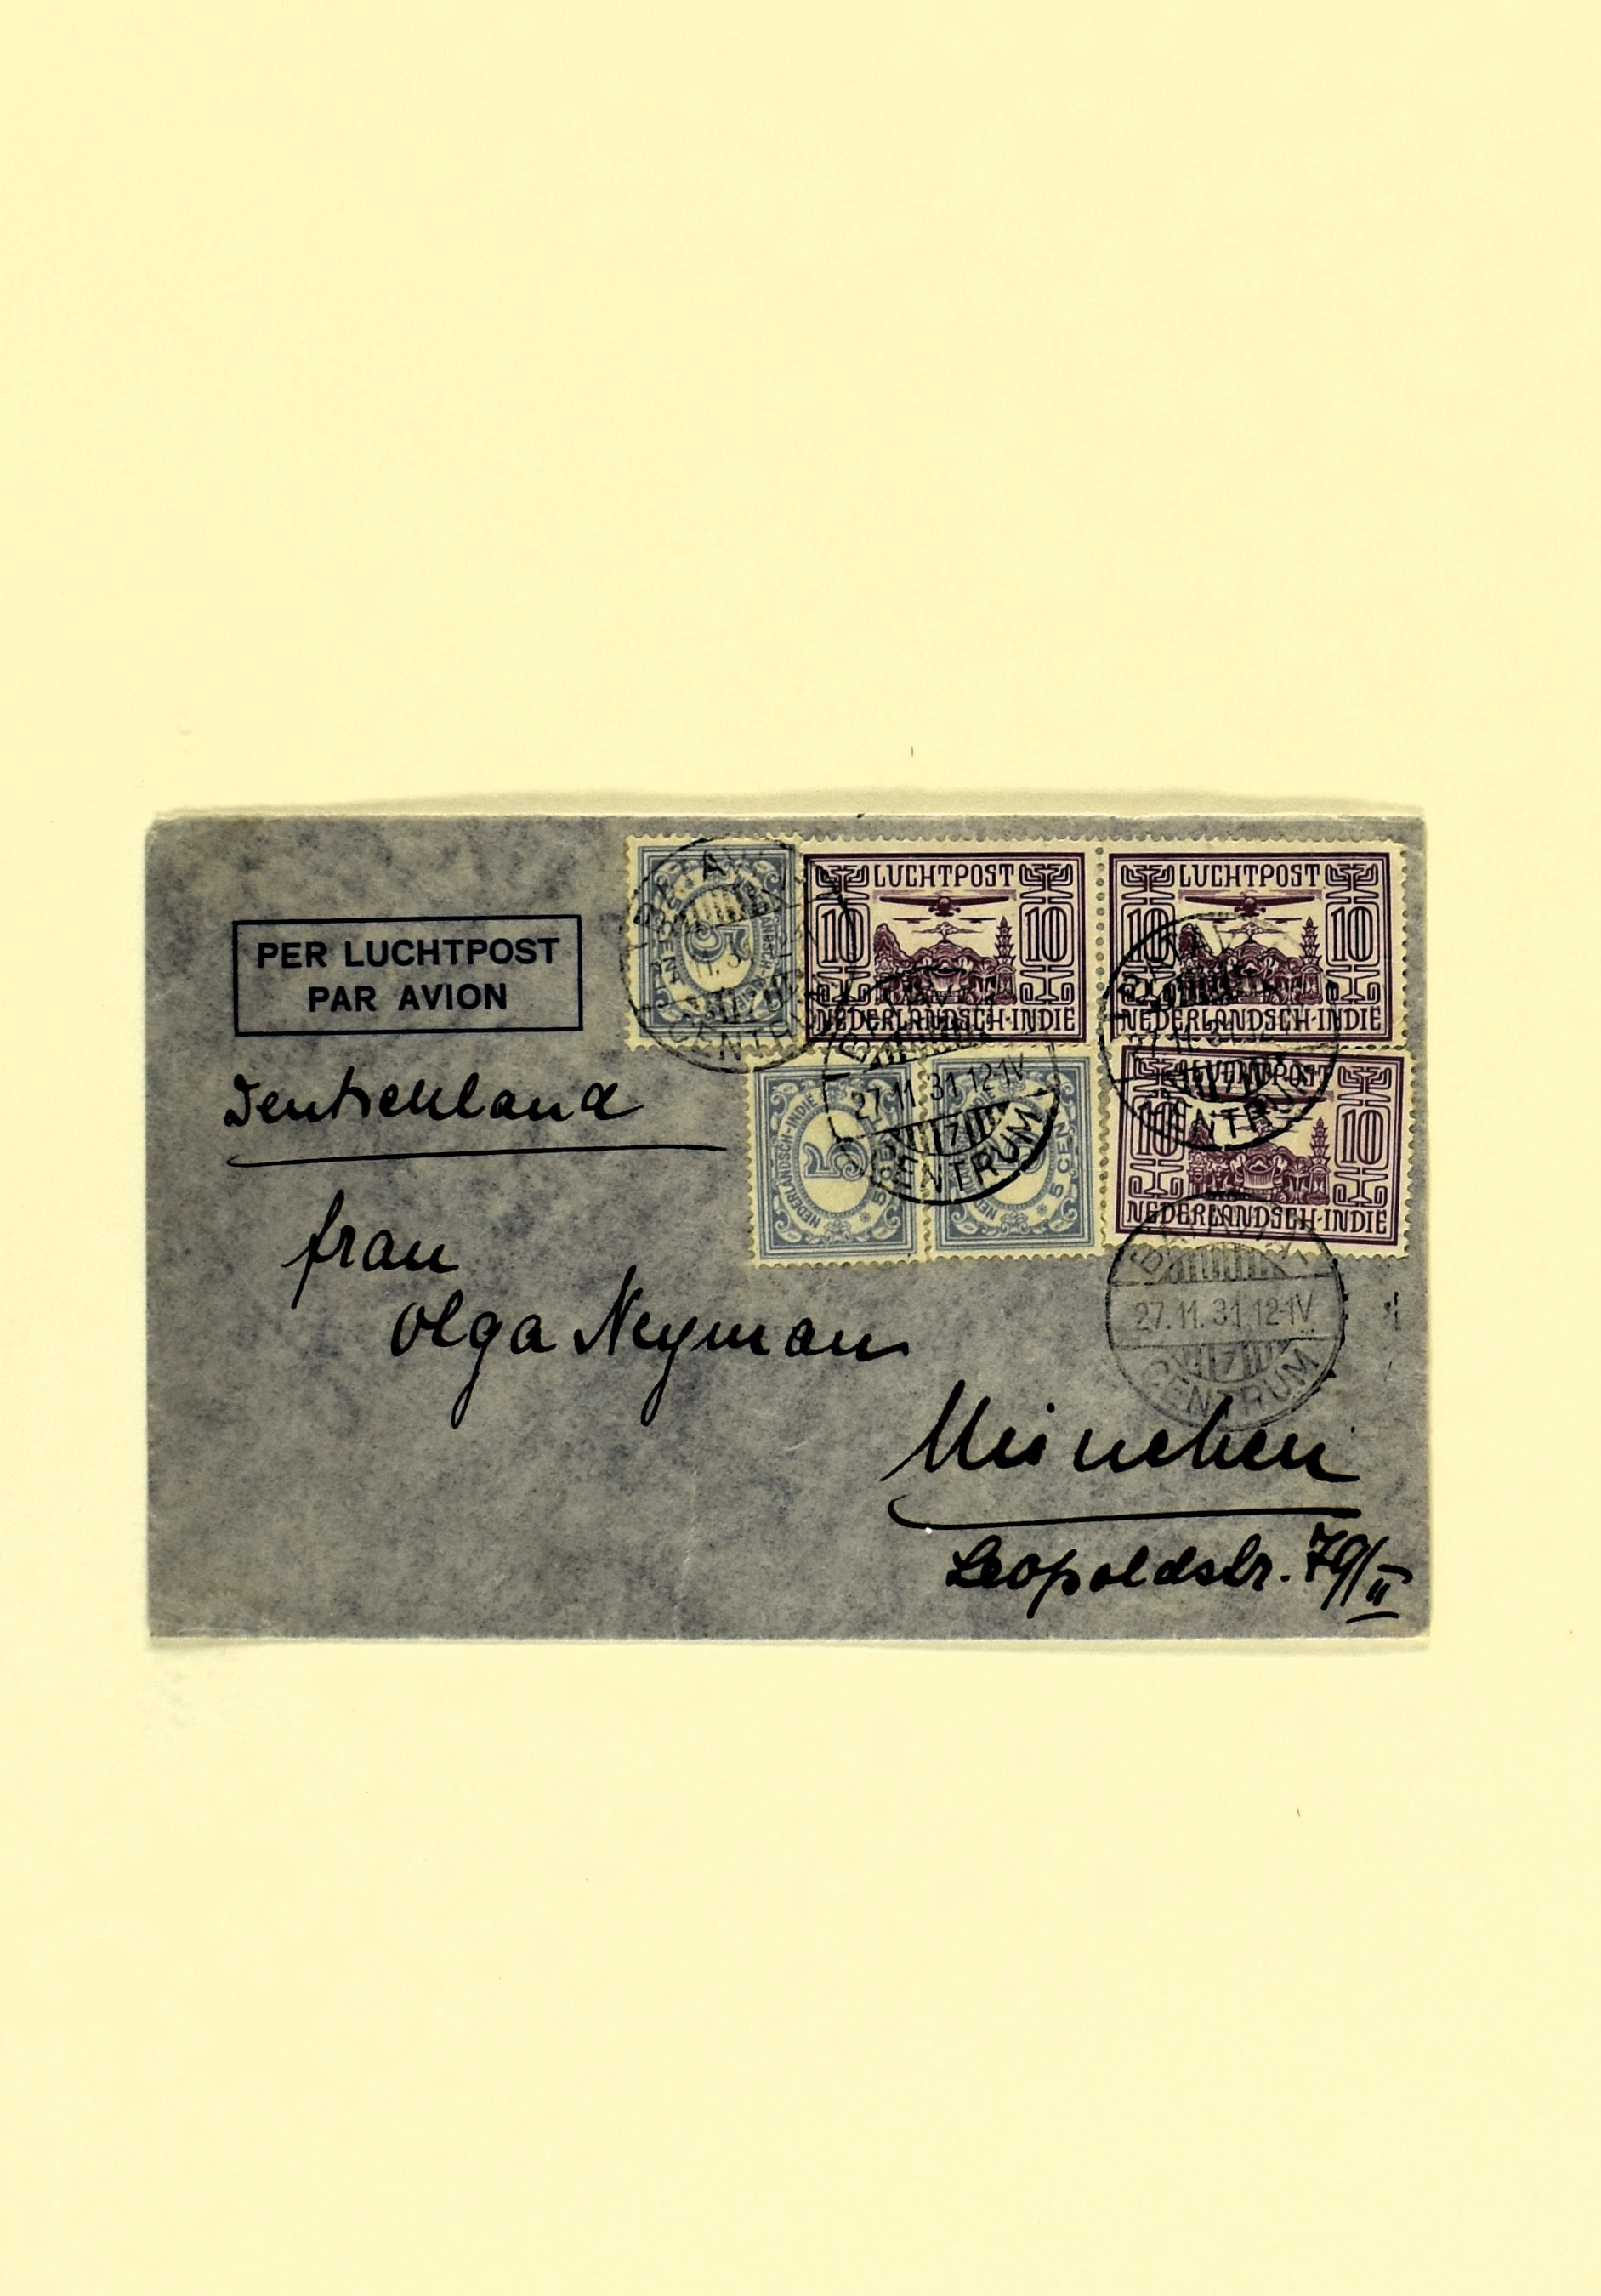 PER LUCHTPOST
PAR AVION
5
LUCHTPOST
10 10
NEDERLANDSCH-INDIE
LUCHTPOST
10 10
NEDERLANDSCH-INDIE
CENTRUM
NEDERLANDSCH-INDIE
5
5 CENT
5 CENT
27.11.31.12-1V
7
CENTRUM
LUCHTPOST
10 10
NEDERLANDSCH-INDIE
27.11.31.12
CENTRUM
BATAVIA
27.11.31.12-1V
7
CENTRUM
Deutschland
Frau
Olga Neyman
München
Leopoldstr. 79/II